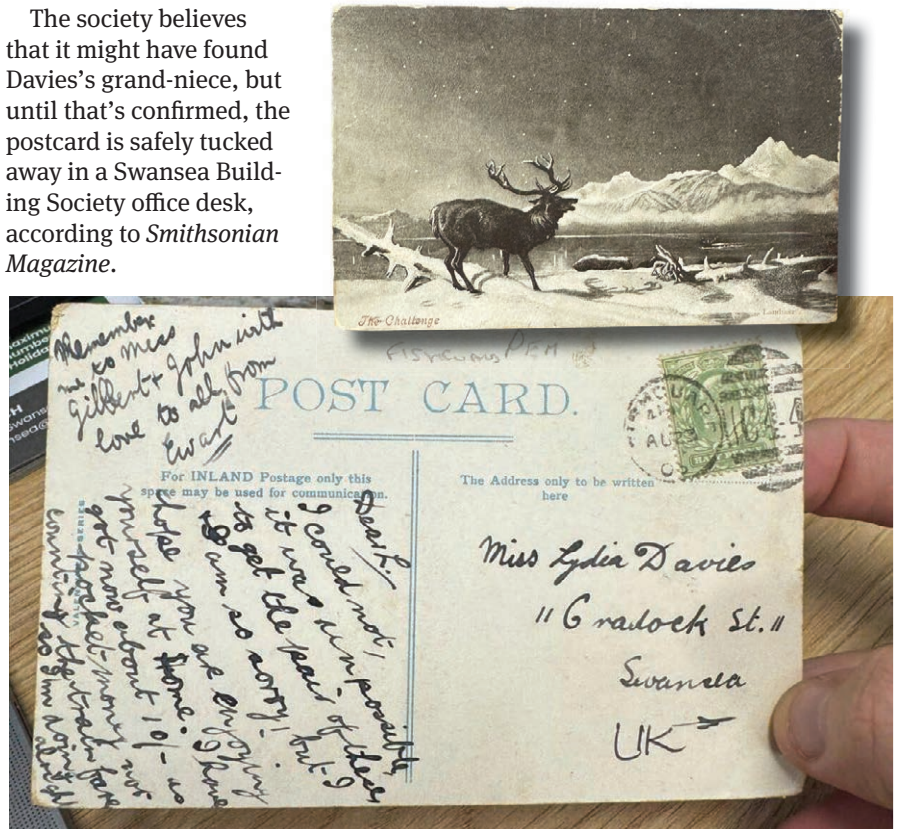 The society believes
that it might have found
Davies's grand-niece, but
until that's confirmed, the
postcard is safely tucked
away in a Swansea Build-
ing Society office desk,
according to Smithsonian
Magazine.
The Challenge
Remember
me to Miss
Gilbert + John with
love to all from
Ewart
FISHGUARD PEM
POST CARD.
For INLAND Postage only this
space may be used for communication.
The Address only to be written
here
AU 3
Dear L.
I could not,
it was impossible
to get the pair of these
I am so sorry! but I
hope you are enjoying
yourself at home. I have
got now about 10/- as
pocket-money not
counting the train fare
so I'm doing
alright
Miss Lydia Davies
"Cradock St."
Swansea
UK